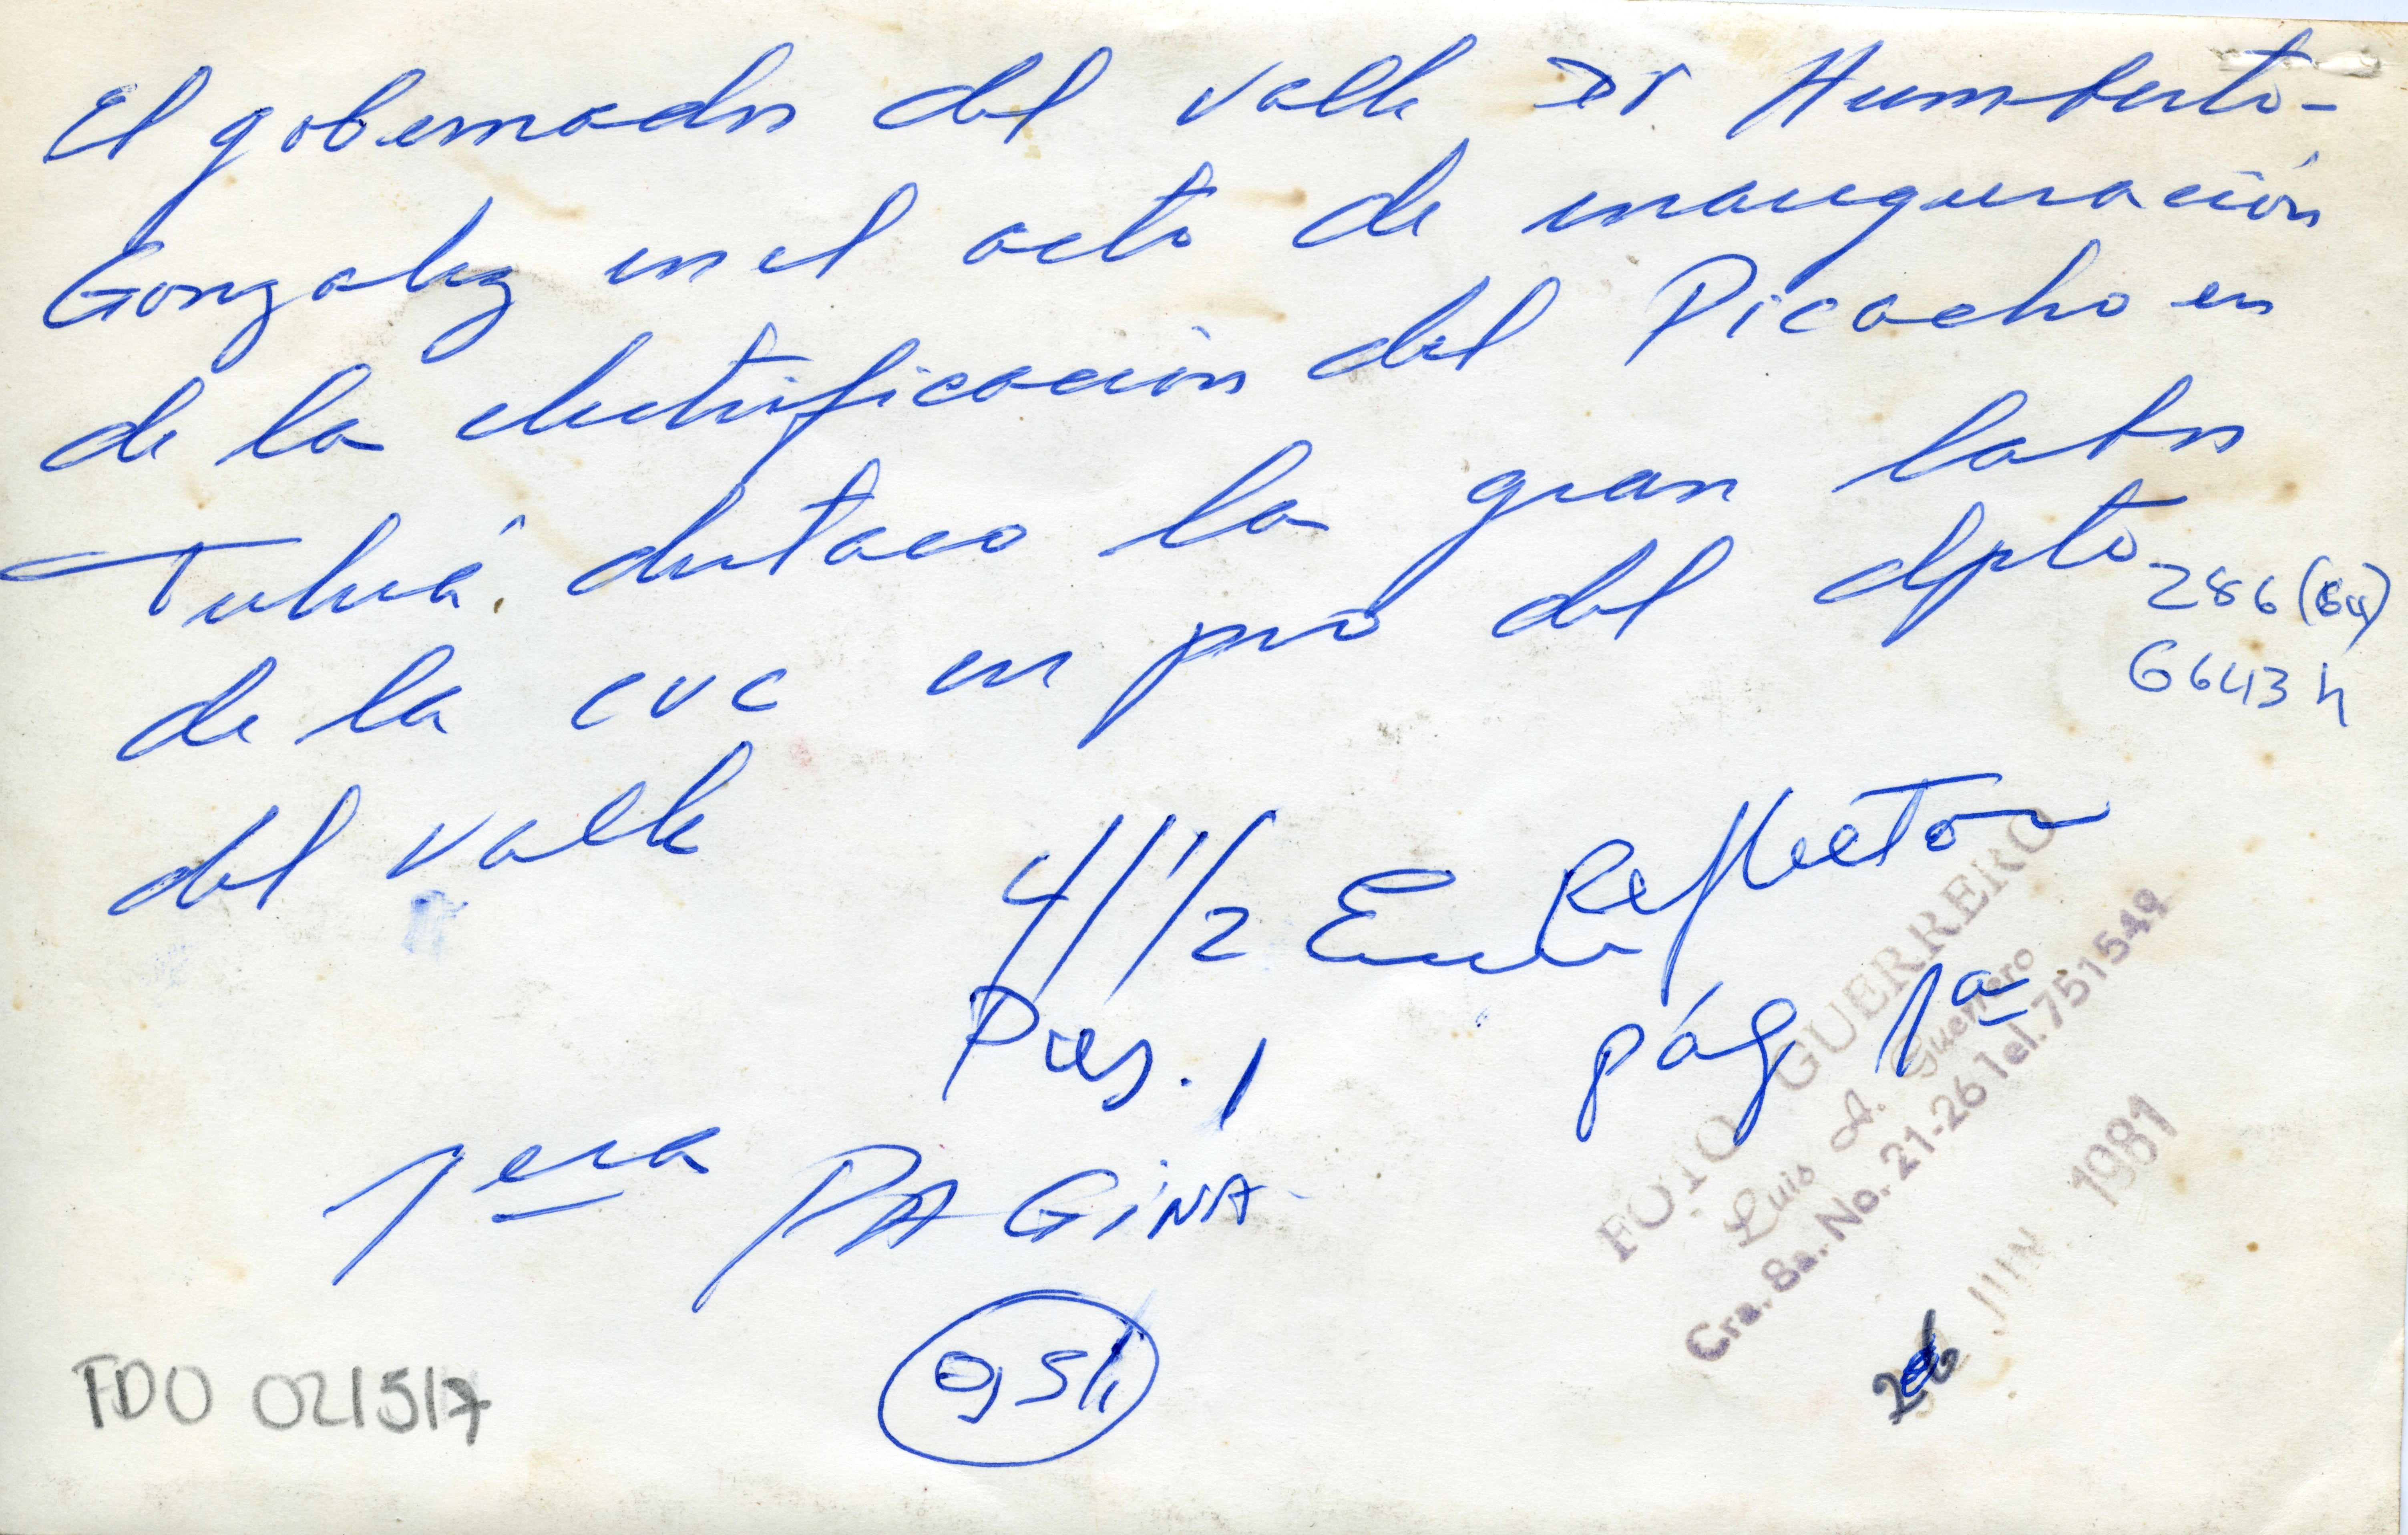 El gobernador del valle Dr Humberto-
Gonzalez en el acto de inauguración
de la electrificación del Picacho en
Tuluá. destaco la gran labor
de la cvc en pro del dpto
del valle
286 (64)
6643 h
4/1/2 En La Reflector
Pres. 1 pág 1a
1era PAGINA
FOTO GUERRERO
Luis A. Guerrero
Cra. 8a. No. 21-26 Tel. 751549
JUN 1981
FDO 021517